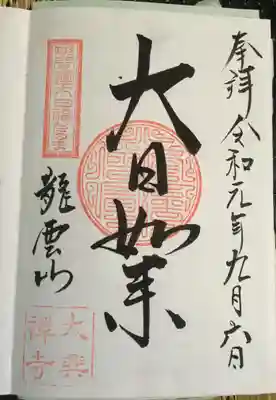 奉拝 令和元年九月六日
大日如来
龍雲山
大興禅寺